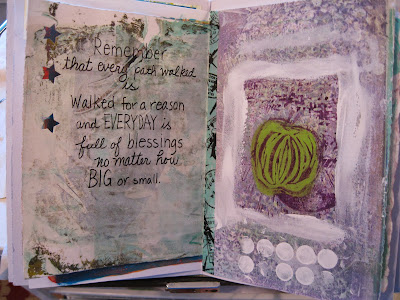 Remember
that every path walked
is
Walked for a reason
and EVERYDAY is
full of blessings
no matter how
BIG or small.